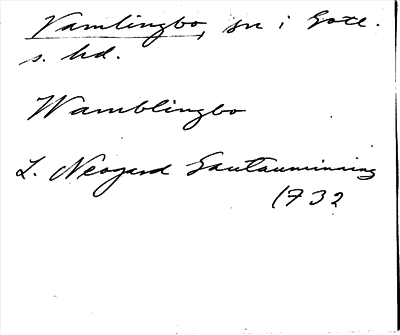 Vamlingbo, sn i Gotl.
s. hd.
Wamblingbo
L. Neogard Gautauminning
1732